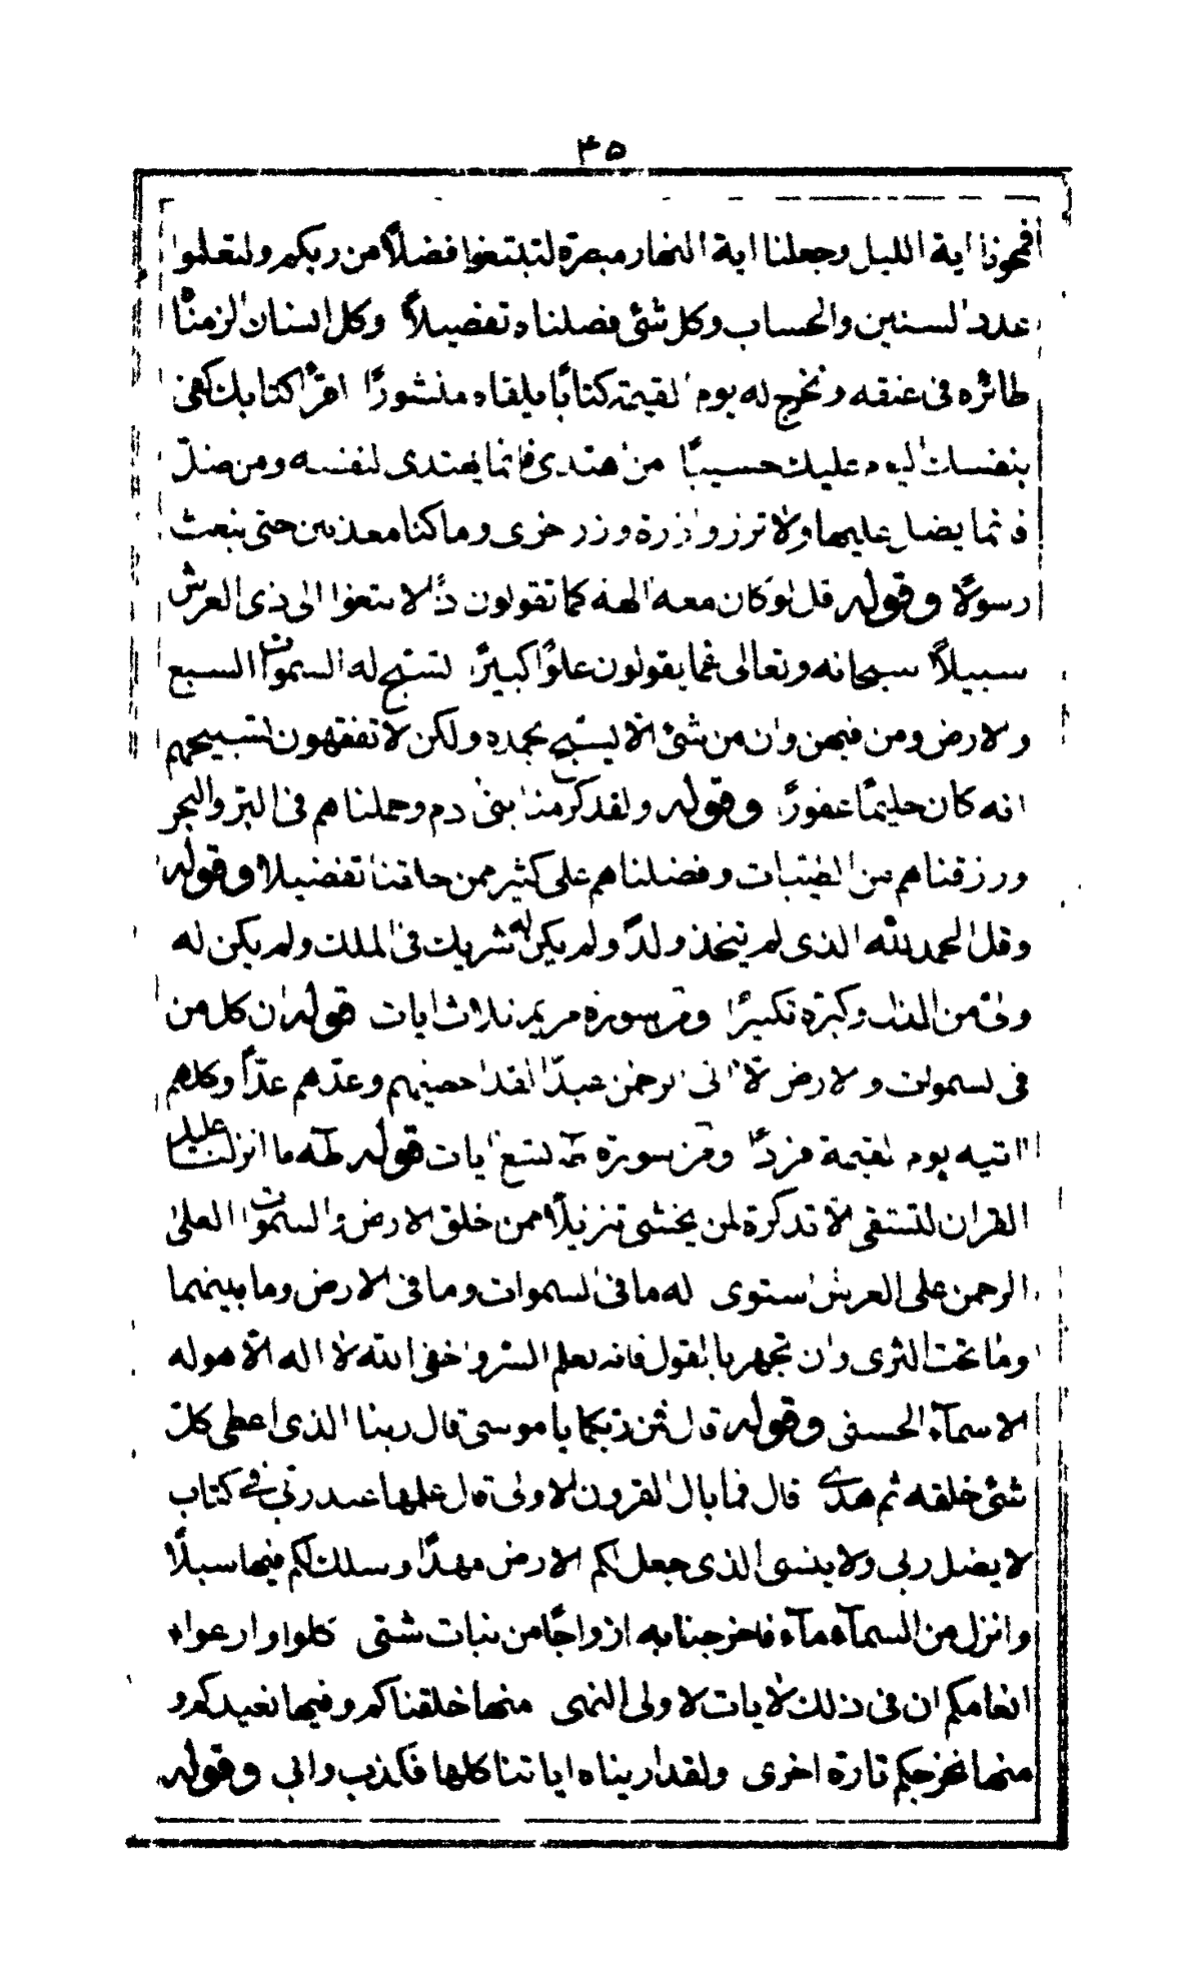 ٣٥
فمحونا اية الليل وجعلنا اية النهار مبصرة لتبتغوا فضلاً من ربكم ولتعلموا
عدد السنين والحساب وكل شئ فصلناه تفصيلاً وكل انسان الزمناه
طائره فى عنقه ونخرج له يوم القيمة كتابًا يلقاه منشورًا اقرأ كتابك كفى
بنفسك اليوم عليك حسيبًا من اهتدى فانما يهتدى لنفسه ومن ضلّ
فانما يضل عليها ولا تزر وازرة وزر اخرى وما كنا معذبين حتى نبعث
رسولًا وقوله قل لو كان معه الهة كما تقولون اذًا لا بتغوا الى ذى العرش
سبيلاً سبحانه وتعالى عما يقولون علوًا كبيرًا تسبّح له السموات السبع
والارض ومن فيهن وان من شئ الّا يسبّح بحمده ولكن لا تفقهون تسبيحهم
انه كان حليمًا غفورًا وقوله ولقد كرّمنا بنى ادم وحملناهم فى البرّ والبحر
ورزقناهم من الطيّبات وفضلناهم على كثير ممن خلقنا تفضيلا وقوله
وقل الحمد لله الذى لم يتخذ ولدًا ولم يكن له شريك فى الملك ولم يكن له
ولىّ من الذل وكبّره تكبيرًا ومن سورة مريم ثلاث ايات قوله ان كل من
فى السموات والارض الّا اتى الرحمن عبدًا لقد احصيهم وعدّهم عدّاً وكلهم
اتيه يوم القيمة فردًا ومن سورة طه تسع ايات قوله طه ما انزلنا عليك
القران لتشقى الّا تذكرة لمن يخشى تنزيلًا ممن خلق الارض والسموات العلى
الرحمن على العرش استوى له ما فى السموات وما فى الارض وما بينهما
وما تحت الثرى وان تجهر بالقول فانه يعلم السرّ واخفى الله لا اله الّا هو له
الاسمآء الحسنى وقوله قال فمن ربّكما يا موسى قال ربنا الذى اعطى كلّ
شئ خلقه ثم هدى قال فما بال القرون الاولى قال علمها عند ربّى فى كتاب
لا يضل ربى ولا ينسى الذى جعل لكم الارض مهدًا وسلك لكم فيها سبلًا
وانزل من السمآء مآء فاخرجنا به ازواجًا من نبات شتى كلوا وارعوا
انعامكم ان فى ذلك لايات لاولى النهى منها خلقناكم وفيها نعيدكم و
منها نخرجكم تارة اخرى ولقد اريناه اياتنا كلها فكذب وابى وقوله